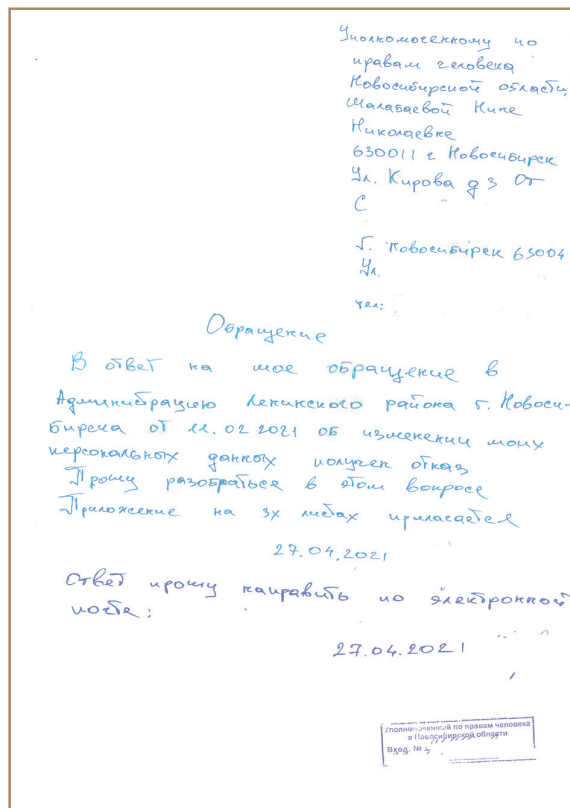 Уполкомоченному по
правам человека
Новосибирской области,
Шалабаевой Нине
Николаевне
630011 г Новосибирск
Ул. Кирова д 3 От
С
г. Новосибирск 63004
Ул.
тел:
Обращение
В ответ на мое обращение в
Администрацию Ленинского района г. Новоси-
бирска от 11.02 2021 об изменении моих
персональных данных получен отказ
Прошу разобраться в этом вопросе
Приложение на 3х листах прилагается
27.04.2021
Ответ прошу направить по электронной
почте:
27.04.2021
Уполномоченный по правам человека
в Новосибирской области
Вход. №